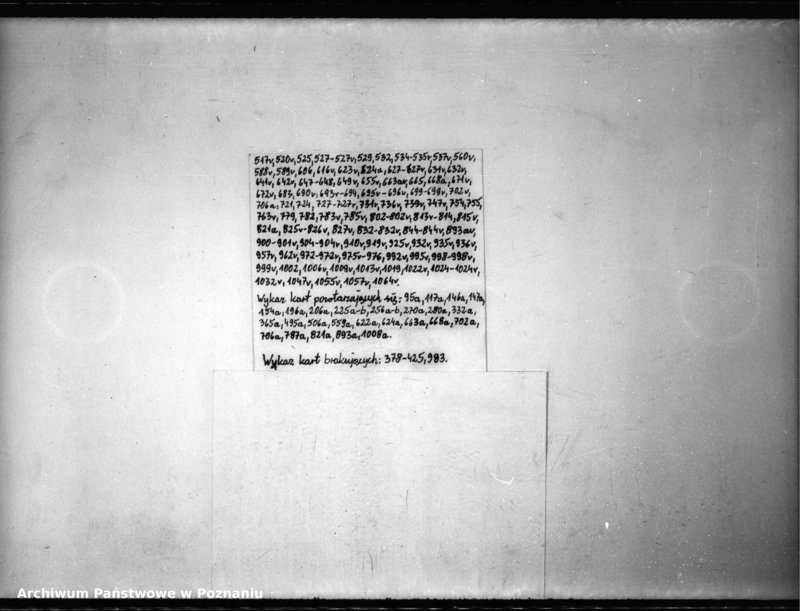 517v, 520v, 525, 527-527v, 529, 532, 534-535v, 537v, 560v,
588v, 589v, 606, 616v, 623v, 624a, 627-627v, 631v, 632v,
641v, 642v, 647-648, 649v, 655v, 663av, 665, 668a, 671v,
672v, 683, 690v, 693v-694, 695v-696v, 699-699v, 702v,
706a, 721, 724, 727-727v, 731v, 736v, 739v, 747v, 754, 755,
763v, 779, 782, 783v, 785v, 802-802v, 813v-814, 815v,
821a, 825v-826v, 827v, 832-832v, 844-844v, 893av,
900-901v, 904-904v, 910v, 919v, 925v, 932v, 935v, 936v,
957v, 962v, 972-972v, 975v-976, 992v, 995v, 998-998v,
999v, 1002, 1006v, 1009v, 1013v, 1019, 1022v, 1024-1024v,
1032v, 1047v, 1055v, 1057v, 1064v.
Wykaz kart powtarzających się: 95a, 117a, 146a, 147a,
154a, 196a, 206a, 225a-b, 256a-b, 270a, 280a, 332a,
365a, 495a, 506a, 559a, 622a, 624a, 663a, 668a, 702a,
706a, 787a, 821a, 893a, 1008a.
Wykaz kart brakujących: 378-425, 983.
Archiwum Państwowe w Poznaniu